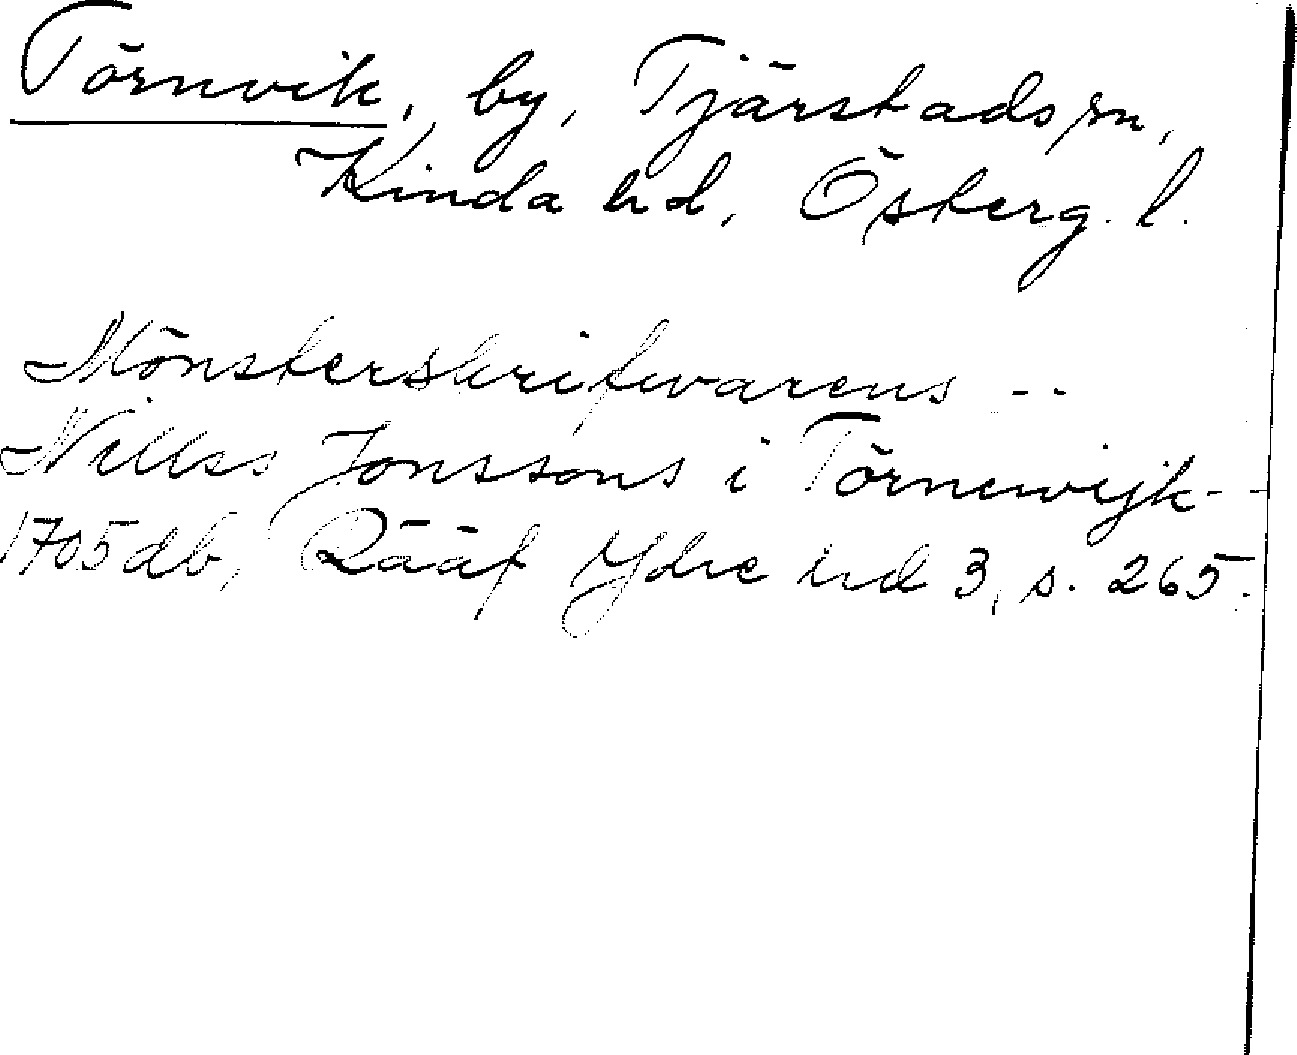 Törnvik, by, Tjärstads sn,
Kinda hd, Österg. l.
Mönsterskrifwarens --
Nillss Jonssons i Törnewijk--
1705 db, Rääf Ydre hd 3, s. 265.